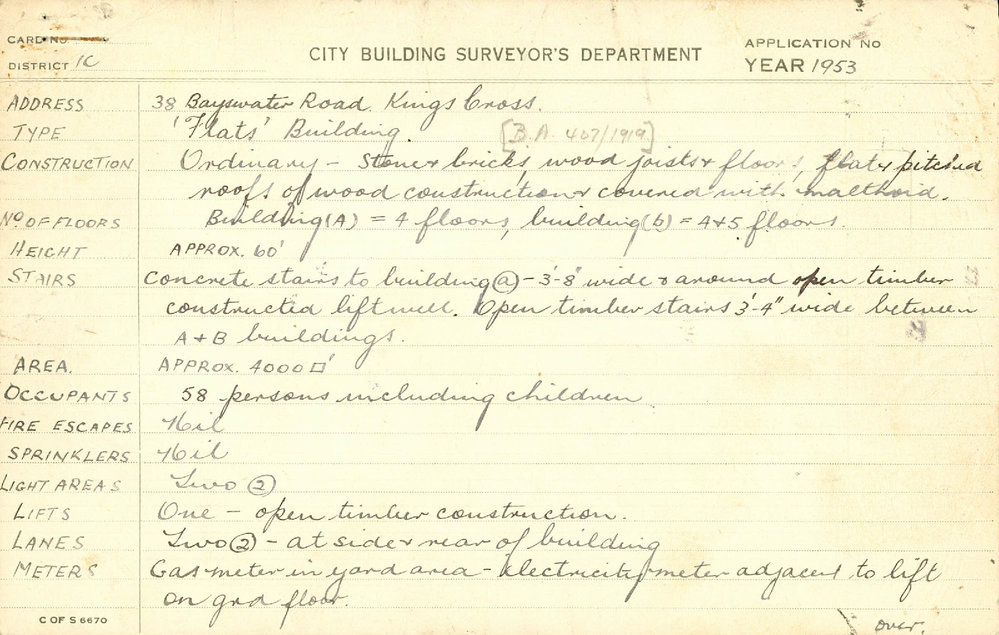 CARD No
CITY BUILDING SURVEYOR'S DEPARTMENT
APPLICATION No
DISTRICT 1C
YEAR 1953
ADDRESS 38 Bayswater Road. Kings Cross.
TYPE 'Flats' Building. [B.A. 407/1919]
CONSTRUCTION Ordinary - Stone & bricks, wood joists & floors, flat & pitched
roofs of wood construction & covered with malthoid.
No OF FLOORS Building (A) = 4 floors, building (b) = 4+5 floors.
HEIGHT APPROX. 60'
STAIRS Concrete stairs to building (a) - 3'-8" wide & around open timber
constructed lift well. Open timber stairs 3'-4" wide between
A + B buildings.
AREA. APPROX. 4000 □'
OCCUPANTS 58 persons including children
FIRE ESCAPES Nil
SPRINKLERS Nil
LIGHT AREAS Two (2)
LIFTS One - open timber construction.
LANES Two (2) - at side & rear of building
METERS Gas meter in yard area - electricity meter adjacent to lift
on grd floor.
C OF S 6670
over.